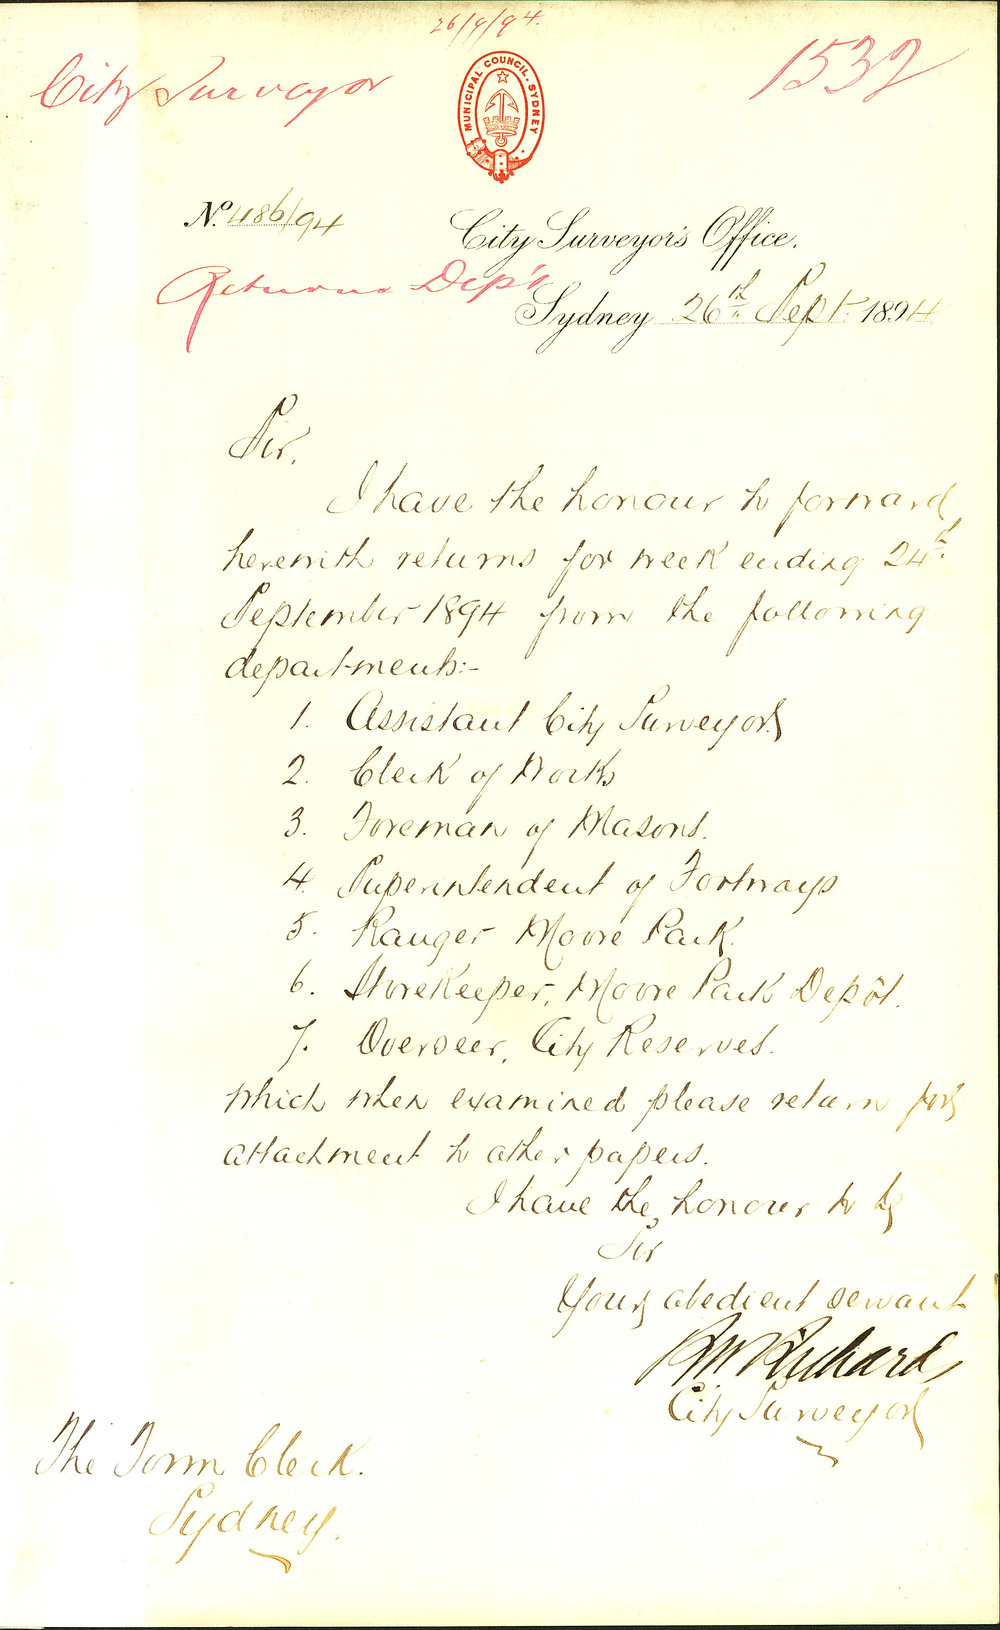 26/9/94.
City Surveyor
1532
MUNICIPAL COUNCIL. SYDNEY
No. 486/94
City Surveyor's Office.
Returns Dep'ts
Sydney 26th Sept. 1894
Sir,
I have the honour to forward
herewith returns for week ending 24th
September 1894 from the following
departments:-
1. Assistant City Surveyor
2. Clerk of Works
3. Foreman of Masons.
4. Superintendent of Footways
5. Ranger Moore Park.
6. Storekeeper, Moore Park Depôt.
7. Overseer, City Reserves.
which when examined please return for
attachment to other papers.
I have the honour to be
Sir
Your obedient servant
RW Richards
City Surveyor
The Town Clerk.
Sydney.